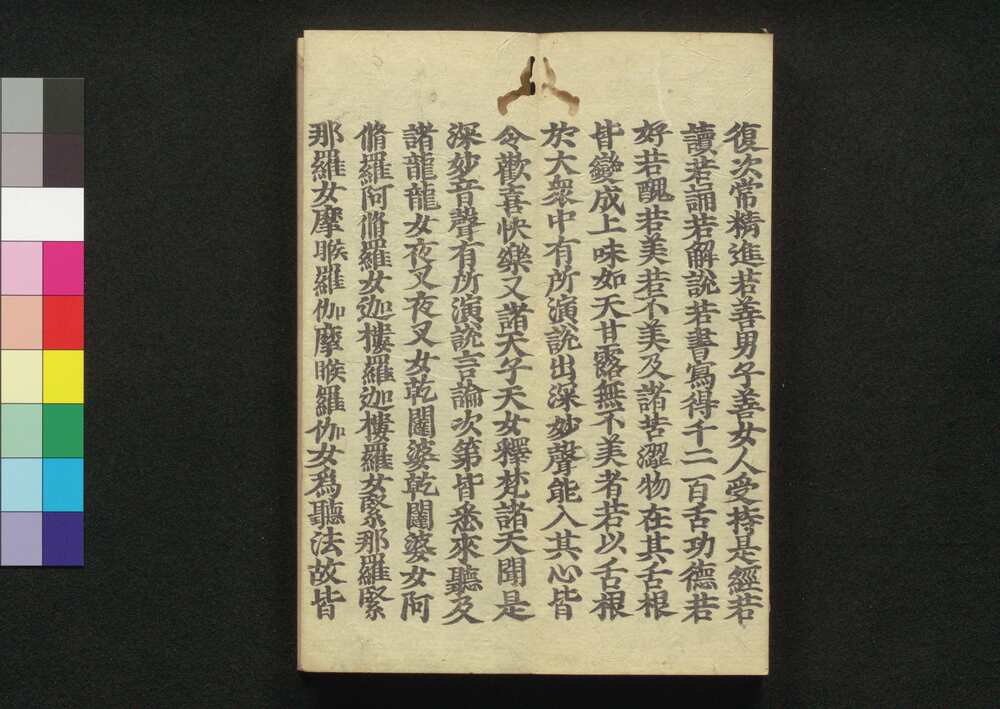 復次常精進若善男子善女人受持是經若
讀若誦若解説若書寫得千二百舌功德若
好若醜若美若不美及諸苦澀物在其舌根
皆變成上味如天甘露無不美者若以舌根
於大衆中有所演説出深妙聲能入其心皆
令歡喜快樂又諸天子天女釋梵諸天聞是
深妙音聲有所演説言論次第皆悉來聽及
諸龍龍女夜叉夜叉女乾闥婆乾闥婆女阿
脩羅阿脩羅女迦樓羅迦樓羅女緊那羅緊
那羅女摩睺羅伽摩睺羅伽女爲聽法故皆